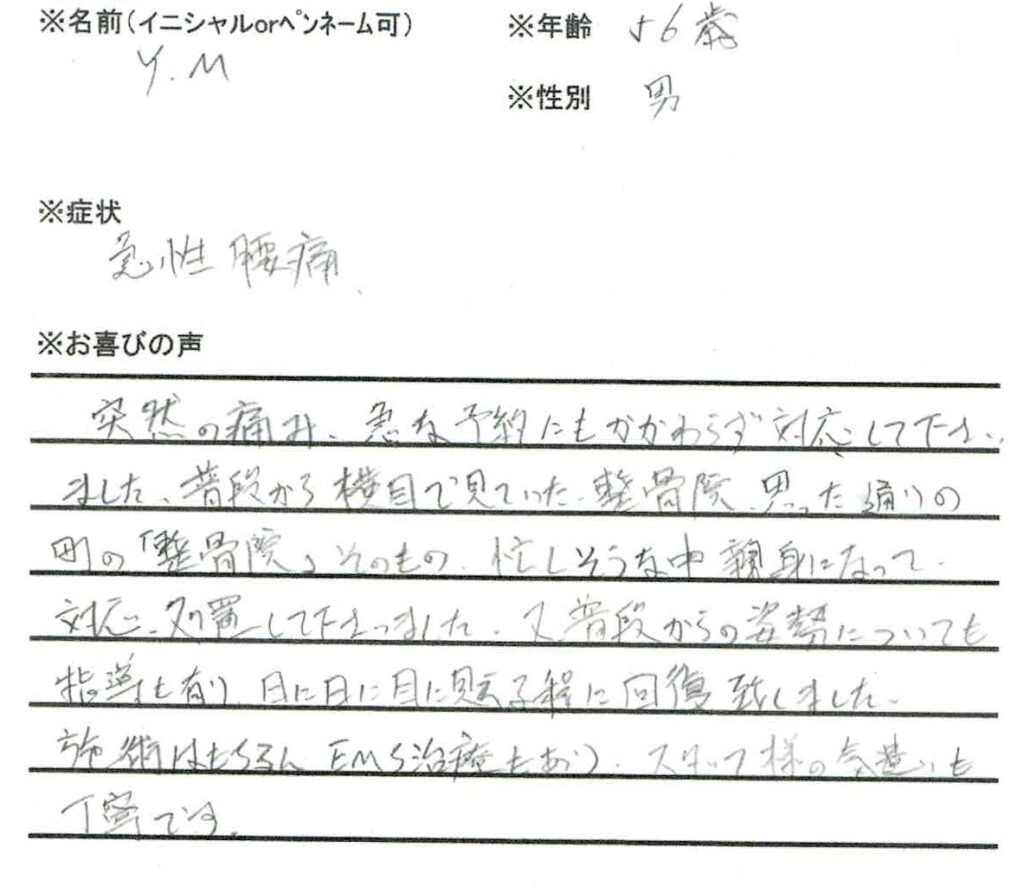 ※名前(イニシャルorペンネーム可)
Y.M
※年齢 56歳
※性別 男
※症状
急性腰痛
※お喜びの声
突然の痛み、急な予約にもかかわらず対応して下さい
ました。普段から横目で見ていた整骨院、思った通りの
町の「整骨院」そのもの。忙しそうな中親身になって
対応、処置して下さいました。又普段からの姿勢についても
指導も有り、日に日に目に見える程に回復致しました。
施術はもちろんEMS治療もあり、スタッフ様の気遣いも
丁寧です。